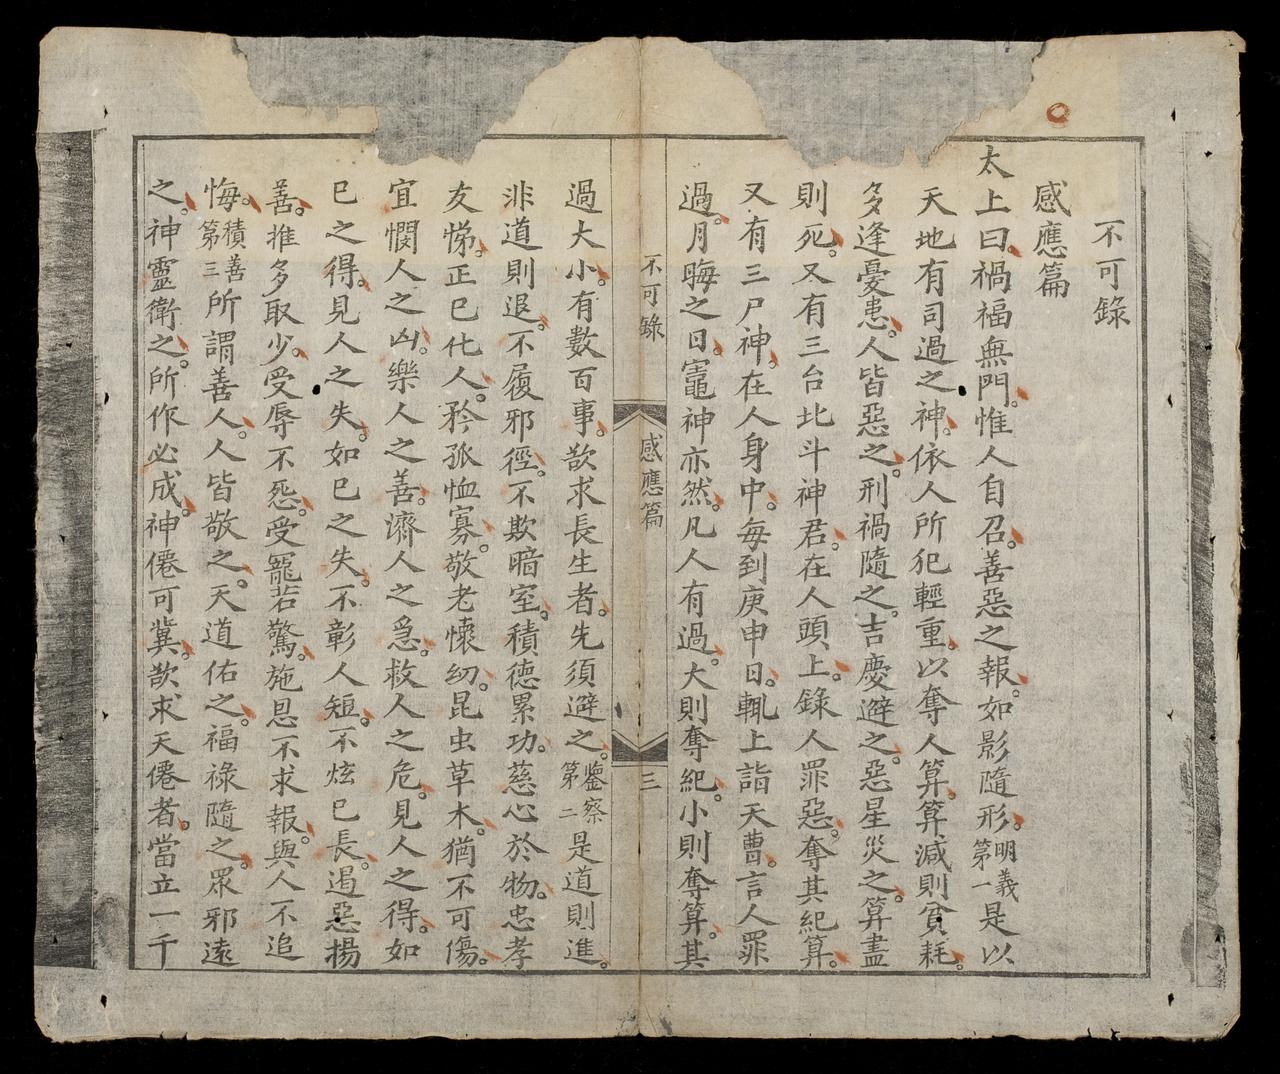 不可錄
感應篇
太上曰。禍福無門。惟人自召。善惡之報。如影隨形。明義第一是以
天地有司過之神。依人所犯輕重。以奪人算。算減則貧耗。
多逢憂患。人皆惡之。刑禍隨之。吉慶避之。惡星災之。算盡
則死。又有三台北斗神君。在人頭上。錄人罪惡。奪其紀算。
又有三尸神。在人身中。每到庚申日。輒上詣天曹。言人罪
過。月晦之日。竈神亦然。凡人有過。大則奪紀。小則奪算。其
不可錄
感應篇
三
過大小。有數百事。欲求長生者。先須避之。鑒察第二是道則進。
非道則退。不履邪徑。不欺暗室。積德累功。慈心於物。忠孝
友悌。正己化人。矜孤恤寡。敬老懷幼。昆虫草木。猶不可傷。
宜憫人之凶。樂人之善。濟人之急。救人之危。見人之得。如
己之得。見人之失。如己之失。不彰人短。不炫己長。遏惡揚
善。推多取少。受辱不怨。受寵若驚。施恩不求報。與人不追
悔。積善第三所謂善人。人皆敬之。天道佑之。福祿隨之。眾邪遠
之。神靈衛之。所作必成。神僊可冀。欲求天僊者。當立一千